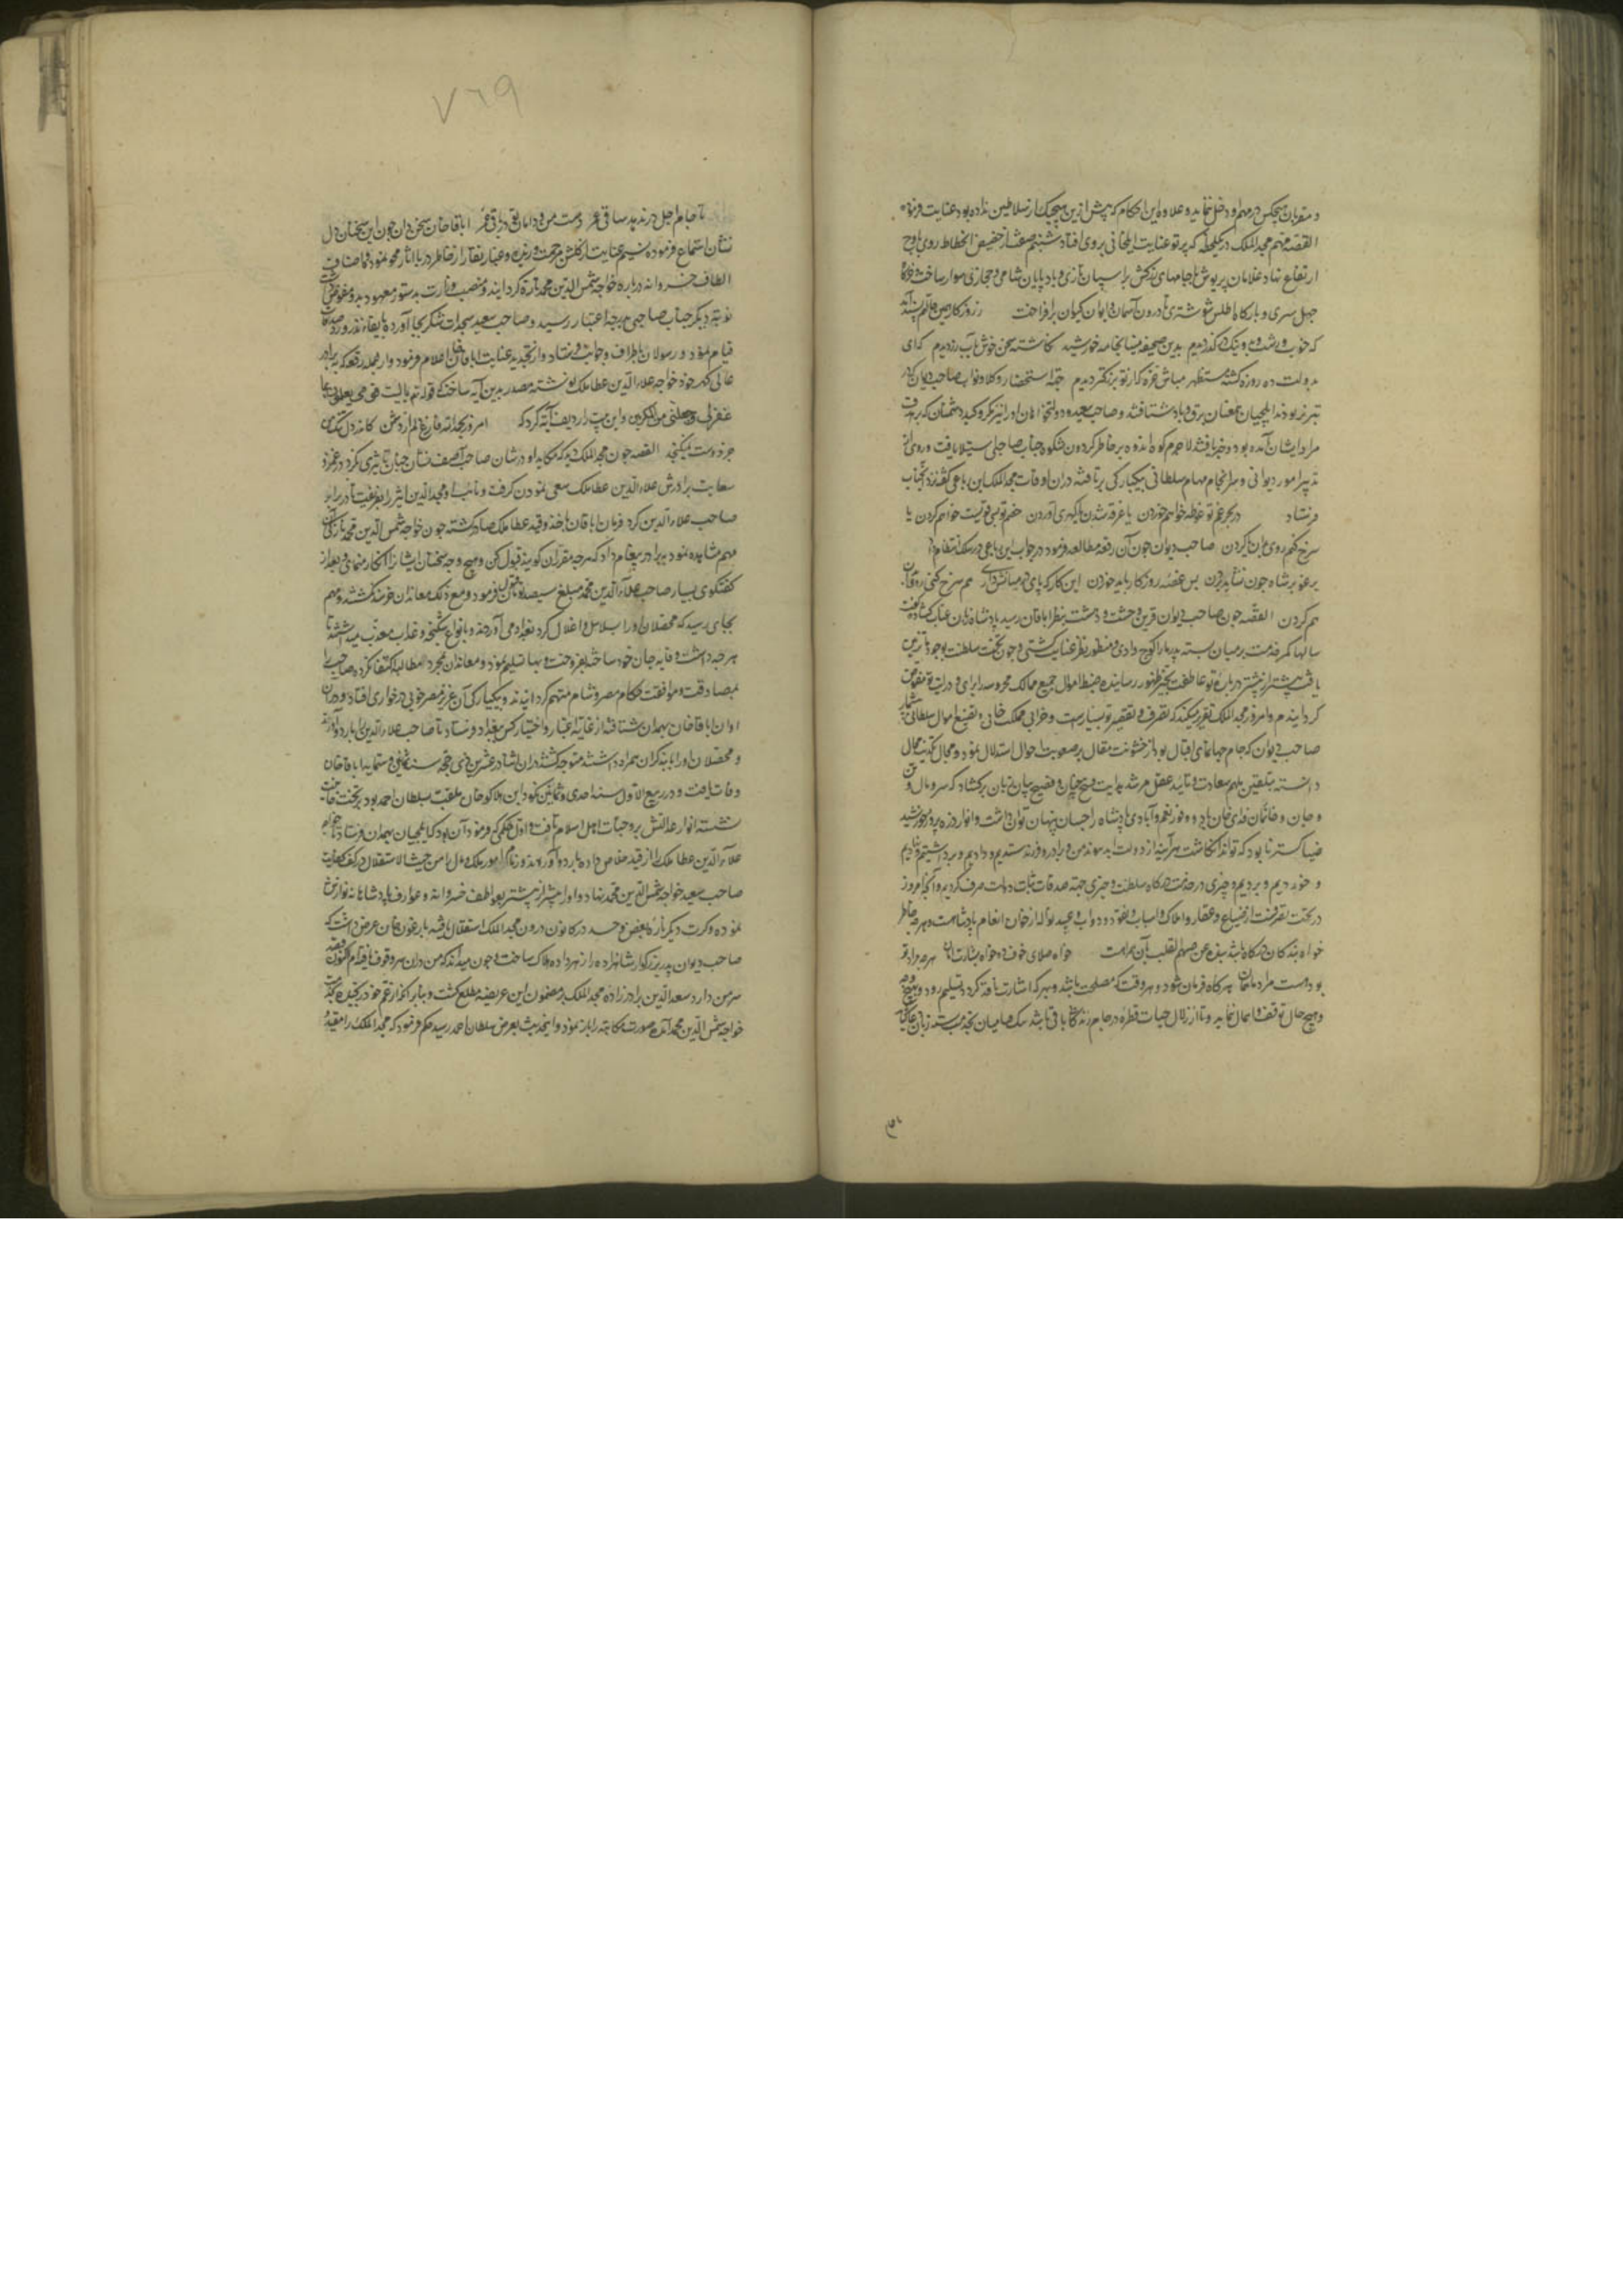 و مقربان هیچکس در مهم او دخل ننماید و علاوه این احکام که پیش ازین هیچیک از سلاطین نداده بود عنایت فرمود
القصه مهم مجد الملک در یکلحظه که پرتو عنایت ایلخانی بروی افتاد از حضیض انحطاط روی باوج
ارتفاع نهاد غلامان پریوش با جامهای زرکش بر اسپان تازی و باد پایان شامی و حجازی سوار ساخت
چهل سری و بارکاه اطلس شوشتری تا درون آسمان و ایوان کیوان برافراخت
که خوب و زشت و بد و نیک در کذر دیدم بدین صحیفه مینا بخامه خورشید نکاشته سخن خوش بآب زر دیدم که ای
بدولت ده روزه کشته مستظهر مباش غره که از تو بزرکتر دیدم جهة استحضار وکلا و نواب صاحب دیوان که در
تبریز بودند ایلچیان همعنان برق و باد شتافتند و صاحب سعید و دولتخواهان او از مکر و کید دشمنان که بر وفق
مراد ایشان آمده بود وخبر یافتند لاجرم کوه اندوه بر خاطر کردون شکوه جناب صاحبی استیلا یافت و روی از
تدبیر امور دیوانی و سرانجام مهام سلطانی بیکبارکی برتافتند در ان اوقات مجد الملک این رباعی کفته نزد آنجناب
فرستاد در بحر غم تو غوطه خواهم خوردن یا غرقه شدن یا کهری آوردن خصم تو بس قویست خواهم کردن یا
سرخ کنم روی بدان یا کردن صاحب دیوان چون آن رقعه مطالعه فرمود در جواب این رباعی در سلک انتظام داد
یرغو بر شاه چون نشاید بردن بس غصه روزکار باید خوردن این کار که پای در میانش داری هم سرخ کنی روی بدان
هم کردن القصه چون صاحب دیوان قرین وحشت و دهشت بنظر اباقان رسید پادشاه زبان عتاب کشاده کفت
سالها کمر خدمت بر میان بسته پدر مارا کوچ دادی و منظور نظر عنایت کشتی و چون تخت سلطنت بوجود ما تزیین
یافت پیشتر از پیشتر در باره تو عاطفت بحیز ظهور رسانیده ضبط اموال جمیع ممالک محروسه را برای و درایت تو مفوض
کردانیدم و امروز مجد الملک تقریر میکند که تصرف و تقصیر تو بسیارست و خرابی مملکت خانی و تضییع اموال سلطانی بیشمار
صاحب دیوان که جام جهان‌نمای اقبال بود از خشونت مقال بر صعوبت احوال استدلال نمود و مجال تکذیب محال
دانسته بتلقین ملهم سعادت و تائید عقل مرشد هدایت فصیح بیان زبان برکشاد که سر و مال و تن
و جان و خانمان فدای خان باد و وفور نعم و آبادی پادشاه را چسان پنهان توان داشت و انوار ذره پرور خورشید
ضیاکستر تا بود که تواند انکاشت هر آینه از دولت ابد پیوند من و برادر و فرزند ستدیم و دادیم و برداشتیم و نهادیم
و خوردیم و بردیم و چیزی در خدمت درکاه سلطنت و چیزی جهة صدقات ثبات دولت صرف کردیم و آنچه امروز
در تحت تصرفست از ضیاع و عقار و املاک و اسباب و نقود و دواب و عبید نواله از خوان انعام پادشاهست و هر چه خاطر
خواه بندکان درکاه باشد بنده عن صمیم القلب بآن همراهست خواه صلای خوف ده خواه بشارت امان هر چه مراد تو
بود هست مراد ما همان هر کاه فرمان شود و هر وقت که مصلحت باشد و بهر که اشارت نافذ کردد تسلیم رود و بهیچ وجه
و هیچ حال توقف و اهمال ننماید و تا از زلال حیات قطره در جام زندکانی باقی باشد
تا جام اجل در ندهد ساقی عمر دست من و دامان تو باقی عمر اباقاخان سخن دان چون این سخنان دل
نشان استماع فرمود نسیم عنایت از کلشن مرحمت وزیده و غبار نقار از خاطر دریا آثار محو نمود و باصناف
الطاف خسروانه درباره خواجه شمس الدین محمد تازه کردانید و منصب وزارت بدستور معهود بدو مفوض کشت
نوبة دیکر جناب صاحبی بدرجه اعتبار رسید و صاحب سعید سجدات شکر بجا آورده بایفاء نذور و صدقات
قیام نمود و رسولان باطراف و جوانب فرستاد و از تجدید عنایت اباقاخان اعلام فرمود و از جمله رقعه که ببرادر
عالی کهر خود خواجه علاء الدین عطا ملک نوشته مصدر بدین آیه ساخت که قوله تعالی یا لیت قومی یعلمون بما
غفر لی ربی و جعلنی من المکرمین و این بیت را ردیف آیه کرد که امروز بحمد الله فارغ دلم از دشمن کاندر دل تنکش
جز دوست نمیکنجد القصه چون مجد الملک دید که مکاید او در شان صاحب آصف نشان چندان تاثیری نکرد در غمز و
سعایت برادرش علاء الدین عطا ملک سعی نمودن کرفت و نائب او مجد الدین اثیر را بفریفت تا در برابر
صاحب علاء الدین کرد فرمان اباقان باخذ و قید عطا ملک صادر کشته چون خواجه شمس الدین محمد نازکی آن
مهم مشاهده نمود ببرادر پیغام داد که هر چه مقرران کویند قبول کن و بهیچ وجه سخنان ایشانرا انکار منمای بعد از
کفتکوی بسیار صاحب علاء الدین محمد مبلغ سیصد تومان قبول فرمود و مع ذلک معاندان خرسند نکشتند و مهم
بجای رسید که محصلان او را بسلاسل و اغلال کرد بغداد می آوردند و بانواع شکنجه و عذاب معذب میداشتند تا
هر چه داشت وقایه جان خود ساخت بفروخت و بها تسلیم نمود و معاندان بمجرد مطالبه اکتفا نکرده صاحب را
بمصادقت و موافقت حکام مصر و شام متهم کردانیدند و بیکبارکی آن عزیز مصر خوبی در خواری افتاد و در ان
اوان اباقاخان بهمدان شتافته از غایة اعتبار و اختیار کس ببغداد فرستاد تا صاحب علاء الدین را باردو آورند
و محصلان او را با بند کران همراه داشتند متوجه کشتند در ان اثنا در عشرین ذی حجه سنه ثمانین و ستمایه اباقاخان
وفات یافت و در ربیع الاول سنه احدی و ثمانین تکودار بن هلاکو خان ملقب بسلطان احمد بود بر تخت خانیت
نشسته انوار عدالتش بر وجنات اهل اسلام تافت و اول حکمی که فرمود آن بود که ایلچیان بهمدان فرستاد تا خواجه
علاء الدین عطا ملک را از قید خلاص داده باردو آوردند و زمام امور ملک و مال را من حیث الاستقلال در کف کفایت
صاحب سعید خواجه شمس الدین محمد نهاد و او را بیشتر از پیشتر بعواطف خسروانه و عوارف پادشاهانه نوازش
نموده و کرت دیکر نایره بغض و حسد در کانون درون مجد الملک اشتعال یافته بارغون خان عرضه داشت که
صاحب دیوان پدر بزرکوار شاهزاده را زهر داده هلاک ساخت و چون میداند که من بران سر وقوف یافته‌ام اکنون قصد
سر من دارد سعد الدین برادرزاده مجد الملک بر مضمون این عریضه مطلع کشت و بنابر انکه از عم خود رنجیده بخدمت
خواجه شمس الدین محمد آمده صورت مکاتبه را باز نمود و اینحدیث بعرض سلطان احمد رسید حکم فرمود که مجد الملک را مقید